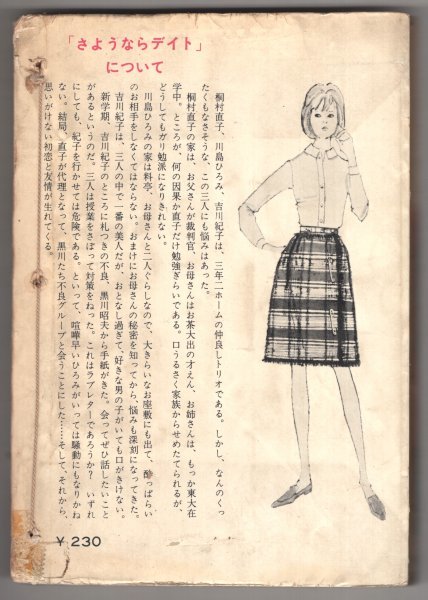 「さようならデイト」
について
桐村直子、川島ひろみ、吉川紀子は、三年二ホームの仲良しトリオである。しかし、なんのくっ
たくもなさそうな、この三人にも悩みはあった。
桐村直子の家は、お父さんが裁判官、お母さんはお茶大出の才えん、お姉さんは、もっか東大在
学中。ところが、何の因果か直子だけ勉強ぎらいである。口うるさく家族からせめたてられるが、
どうしてもガリ勉派になりきれない。
川島ひろみの家は料亭、お母さんと二人ぐらしなので、大きらいなお座敷にも出て、酔っぱらい
のお相手をしなくてはならない。おまけにお母さんの秘密を知ってから、悩みも深刻になってきた。
吉川紀子は、三人の中で一番の美人だが、おとなし過ぎて、好きな男の子がいても口がきけない。
新学期、吉川紀子のところに札つきの不良、黒川昭夫から手紙がきた。会ってぜひ話したいこと
があるというのだ。三人は授業をさぼって対策をねった。これはラブレターであろうか？　いずれ
にしても、紀子を行かせては危険である。といって、喧嘩早いひろみがいっては騒動にもなりかね
ない。結局、直子が代理となって、黒川たち不良グループと会うことにした……そして、それから、
思いがけない初恋と友情が生れてくる。
￥230